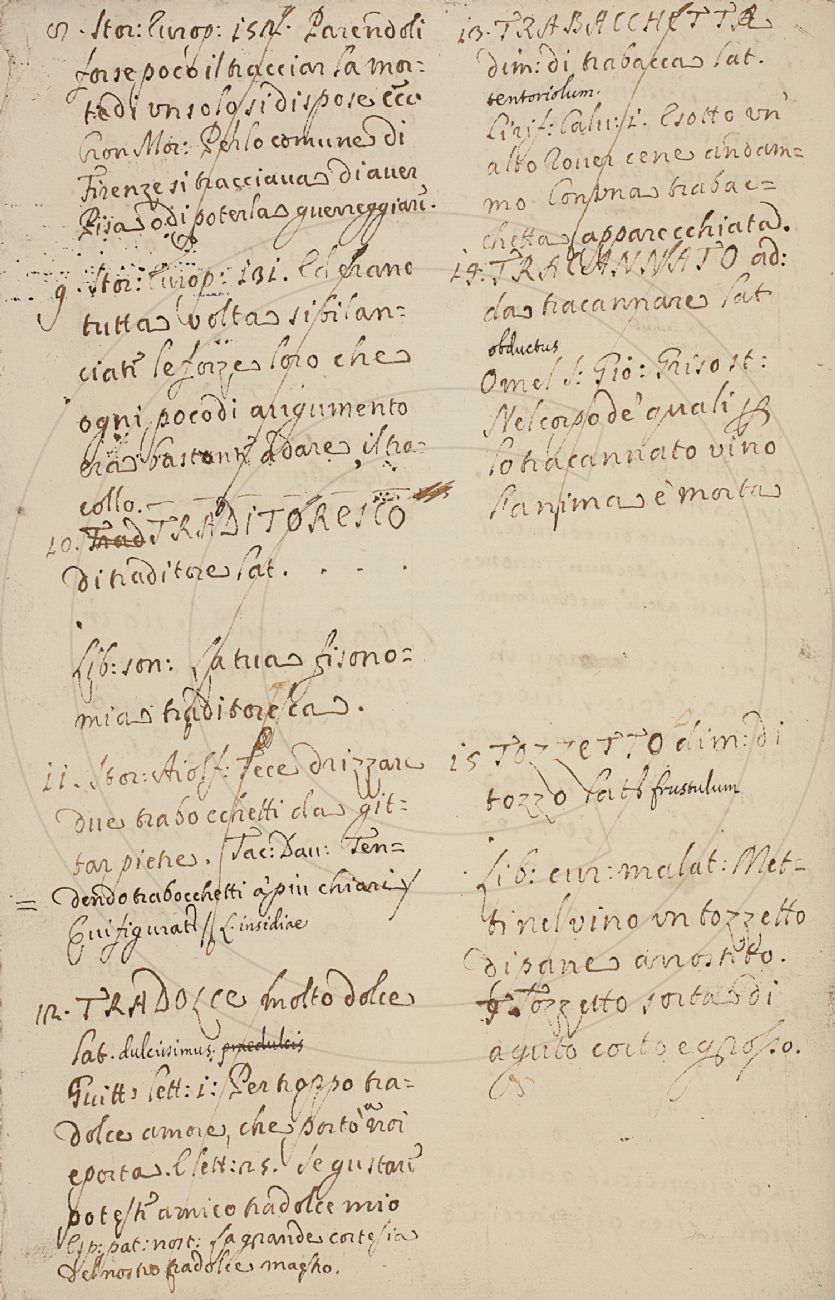 8. Stor: Europ: 152. Parendoli
forse poco il tracciar la mor:
te di un solo si dispose ecc.
Cron Mor: Perlo comune di
Firenze si tracciava di aver
Pisa o di poterla guerreggiare.
9. Stor: Europ: 131. Ed erano
tutta volta si bilan=
ciate le forze loro che
ogni poco di augumento
era bastante a dare il tra:
collo.
10. Trad TRADITORESCO
di traditore Lat. . . .
Lib: son: La tua fisono=
mia traditoresca.
11. Stor: Aiolf: Fece drizzare
due trabocchetti da git=
tar pietre. Tac: Dav: Ten=
= dendo trabocchetti a' più chiari
E qui figurat. L. insidiae
12. TRADOLCE Molto dolce
Lat. dulcissimus, praedulcis
Guitt. lett: 1: Per troppo tra=
dolce amore, che portò a noi
e porta. E lett: 25. Se gustare
poteste amico tradolce mio
Esp: pat: nost: La grande cortesia
del nostro tradolce mastro.
13. TRABACCHETTA
dim: di trabacca Lat.
tentoriolum.
Cirif: Calv: 1. E sotto un
altro Rover cene andam=
mo Con una trabac=
chetta apparecchiata.
14. TRACANNATO ad:
da tracannare Lat
obductus
Omel S: Gio: Grisost:
Nel corpo de' quali
lo tracannato vino
l'anima è morta
15 TOZZETTO dim: di
tozzo Lat: frustulum
Lib: cur: malat: Met=
ti nel vino un tozzetto
di pane arrostito.
§. Tozzetto sorta di
aguto corto e grosso.